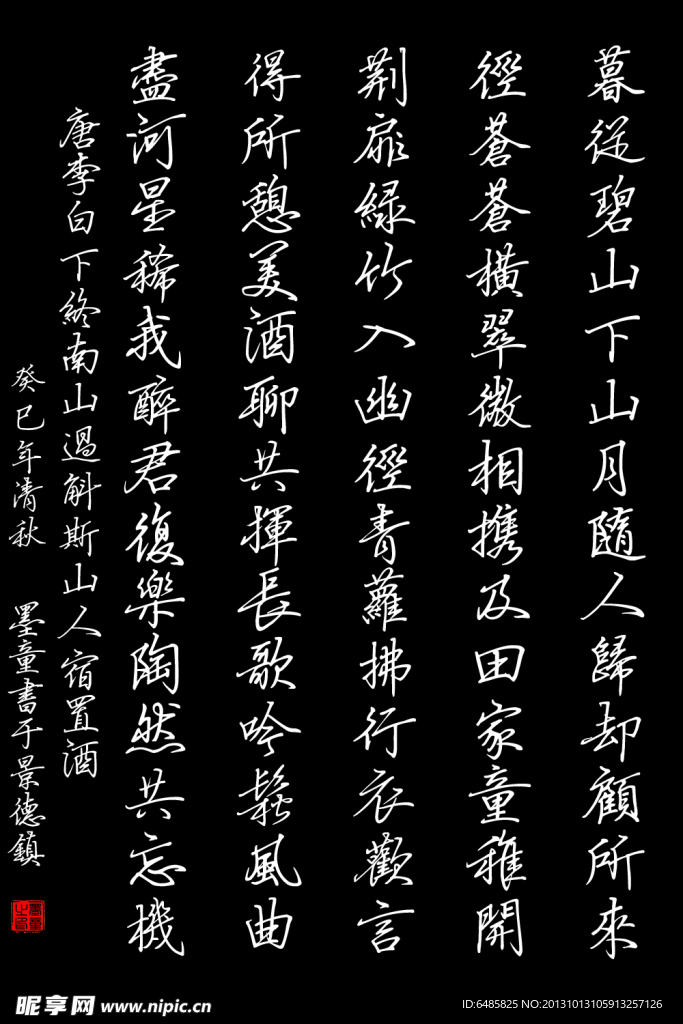 暮從碧山下山月隨人歸却顧所來
徑蒼蒼橫翠微相携及田家童稚開
荆扉綠竹入幽徑青蘿拂行衣歡言
得所憩美酒聊共揮長歌吟鬆風曲
盡河星稀我醉君復樂陶然共忘機
唐李白下終南山過斛斯山人宿置酒
癸巳年清秋 墨童書于景德鎮
昵享网 www.nipic.cn
ID:6485825 NO:20131013105913257126